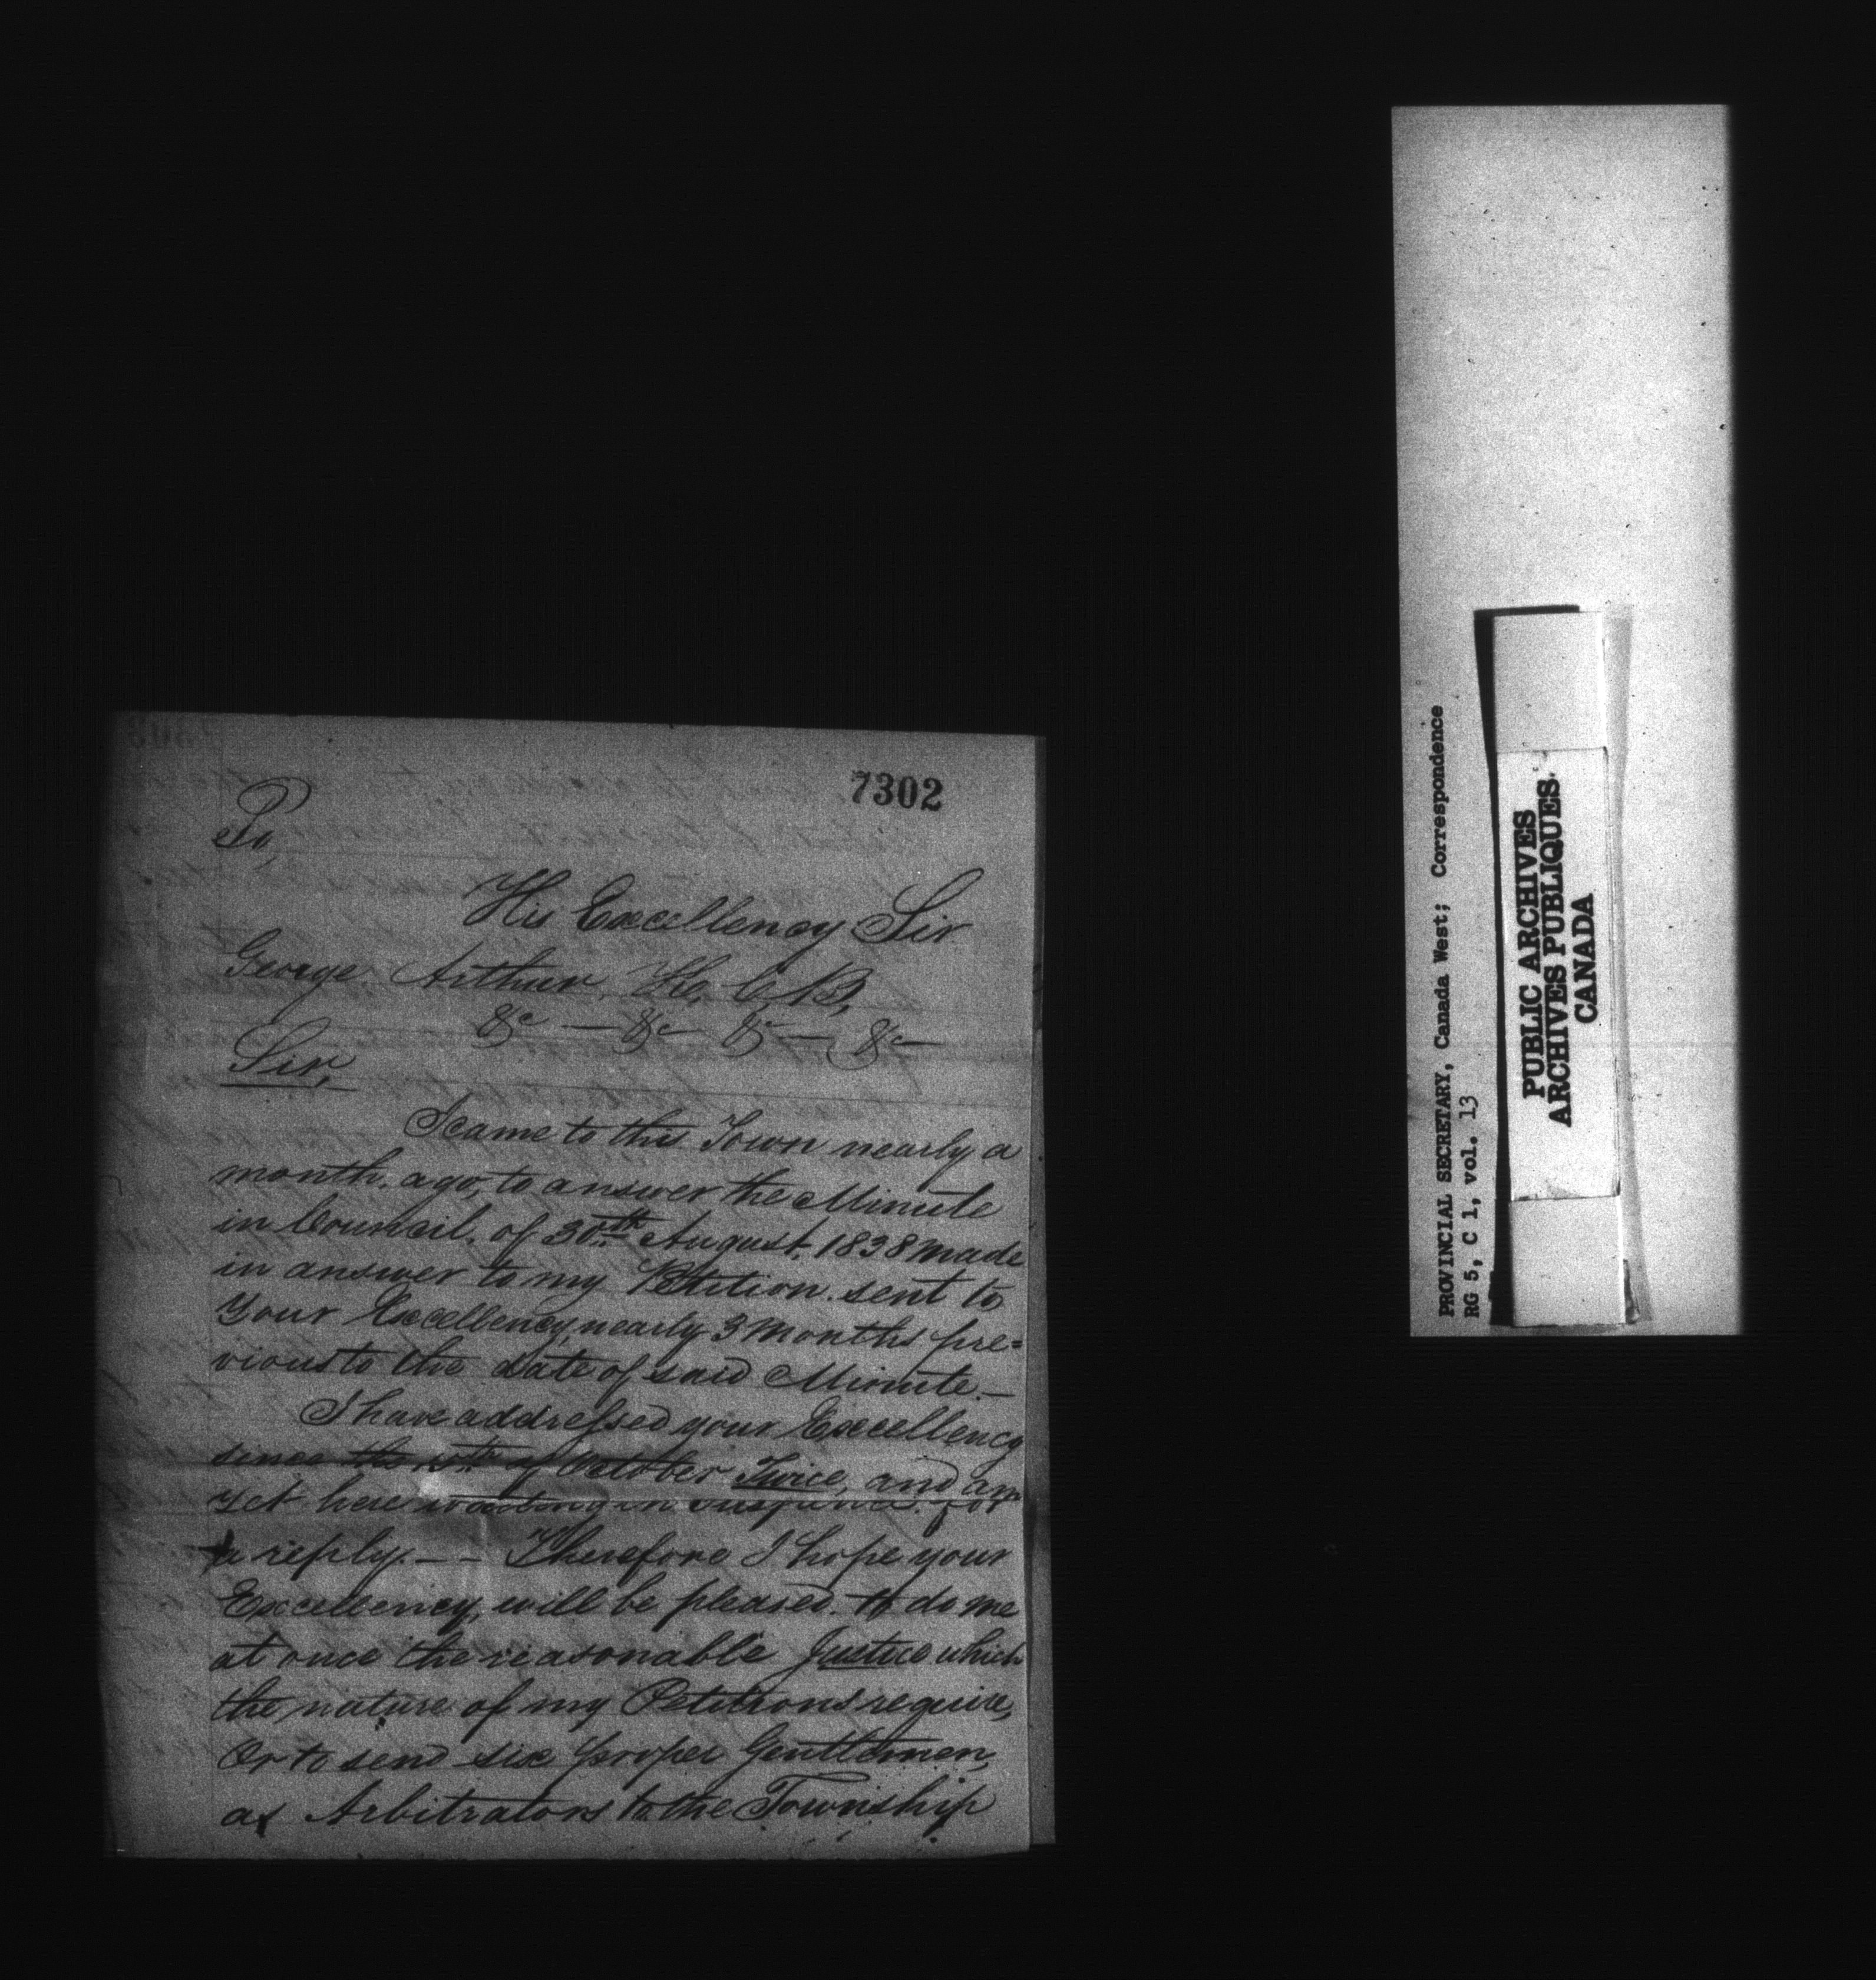 7302
To,
His Excellency Sir
George Arthur, K. C. B,
&c — &c &c — &c —
Sir,
I came to this Town nearly a
month. ago, to answer the Minute
in Council. of 30th August. 1838 made
in answer to my Petition. sent to
Your Excellency, nearly 3 Months pre=
vious to the date of said Minute.—
I have addressed your Excellency
since the 15th of October Twice, and am
yet here waiting in suspence. for
a reply.— – Therefore I hope your
Excellency, will be pleased. to do me
at once the reasonable Justice which
the nature of my Petitions require,
Or to send six proper Gentlemen,
as Arbitrators to the Township
PROVINCIAL SECRETARY, Canada West; Correspondence
RG 5, C 1, vol. 13
PUBLIC ARCHIVES
ARCHIVES PUBLIQUES
CANADA